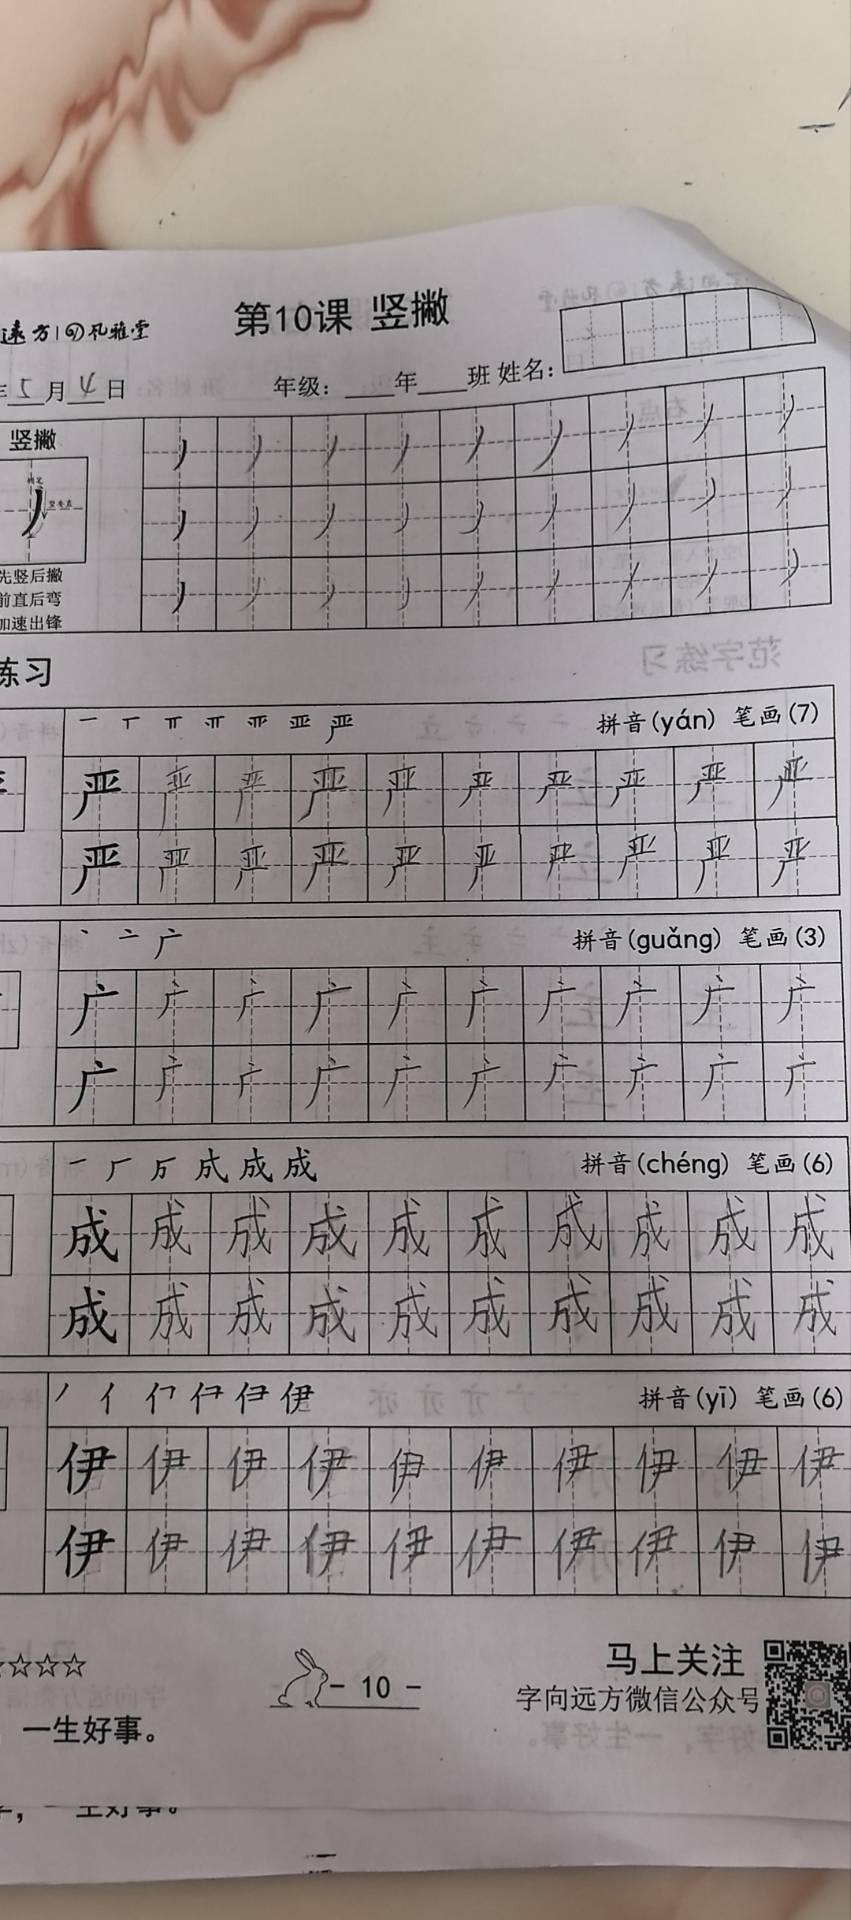 第10课 竖撇
远方
5月4日 年级：____年____班 姓名：
竖撇
先竖后撇
前直后弯
加速出锋
练习
拼音(yán) 笔画(7)
严 严 严 严 严 严 严 严 严 严
严 严 严 严 严 严 严 严 严 严
拼音(guǎng) 笔画(3)
广 广 广 广 广 广 广 广 广 广
广 广 广 广 广 广 广 广 广 广
拼音(chéng) 笔画(6)
成 成 成 成 成 成 成 成 成 成
成 成 成 成 成 成 成 成 成 成
拼音(yī) 笔画(6)
伊 伊 伊 伊 伊 伊 伊 伊 伊 伊
伊 伊 伊 伊 伊 伊 伊 伊 伊 伊
☆☆☆☆
- 10 -
马上关注
字向远方微信公众号
一生好事。